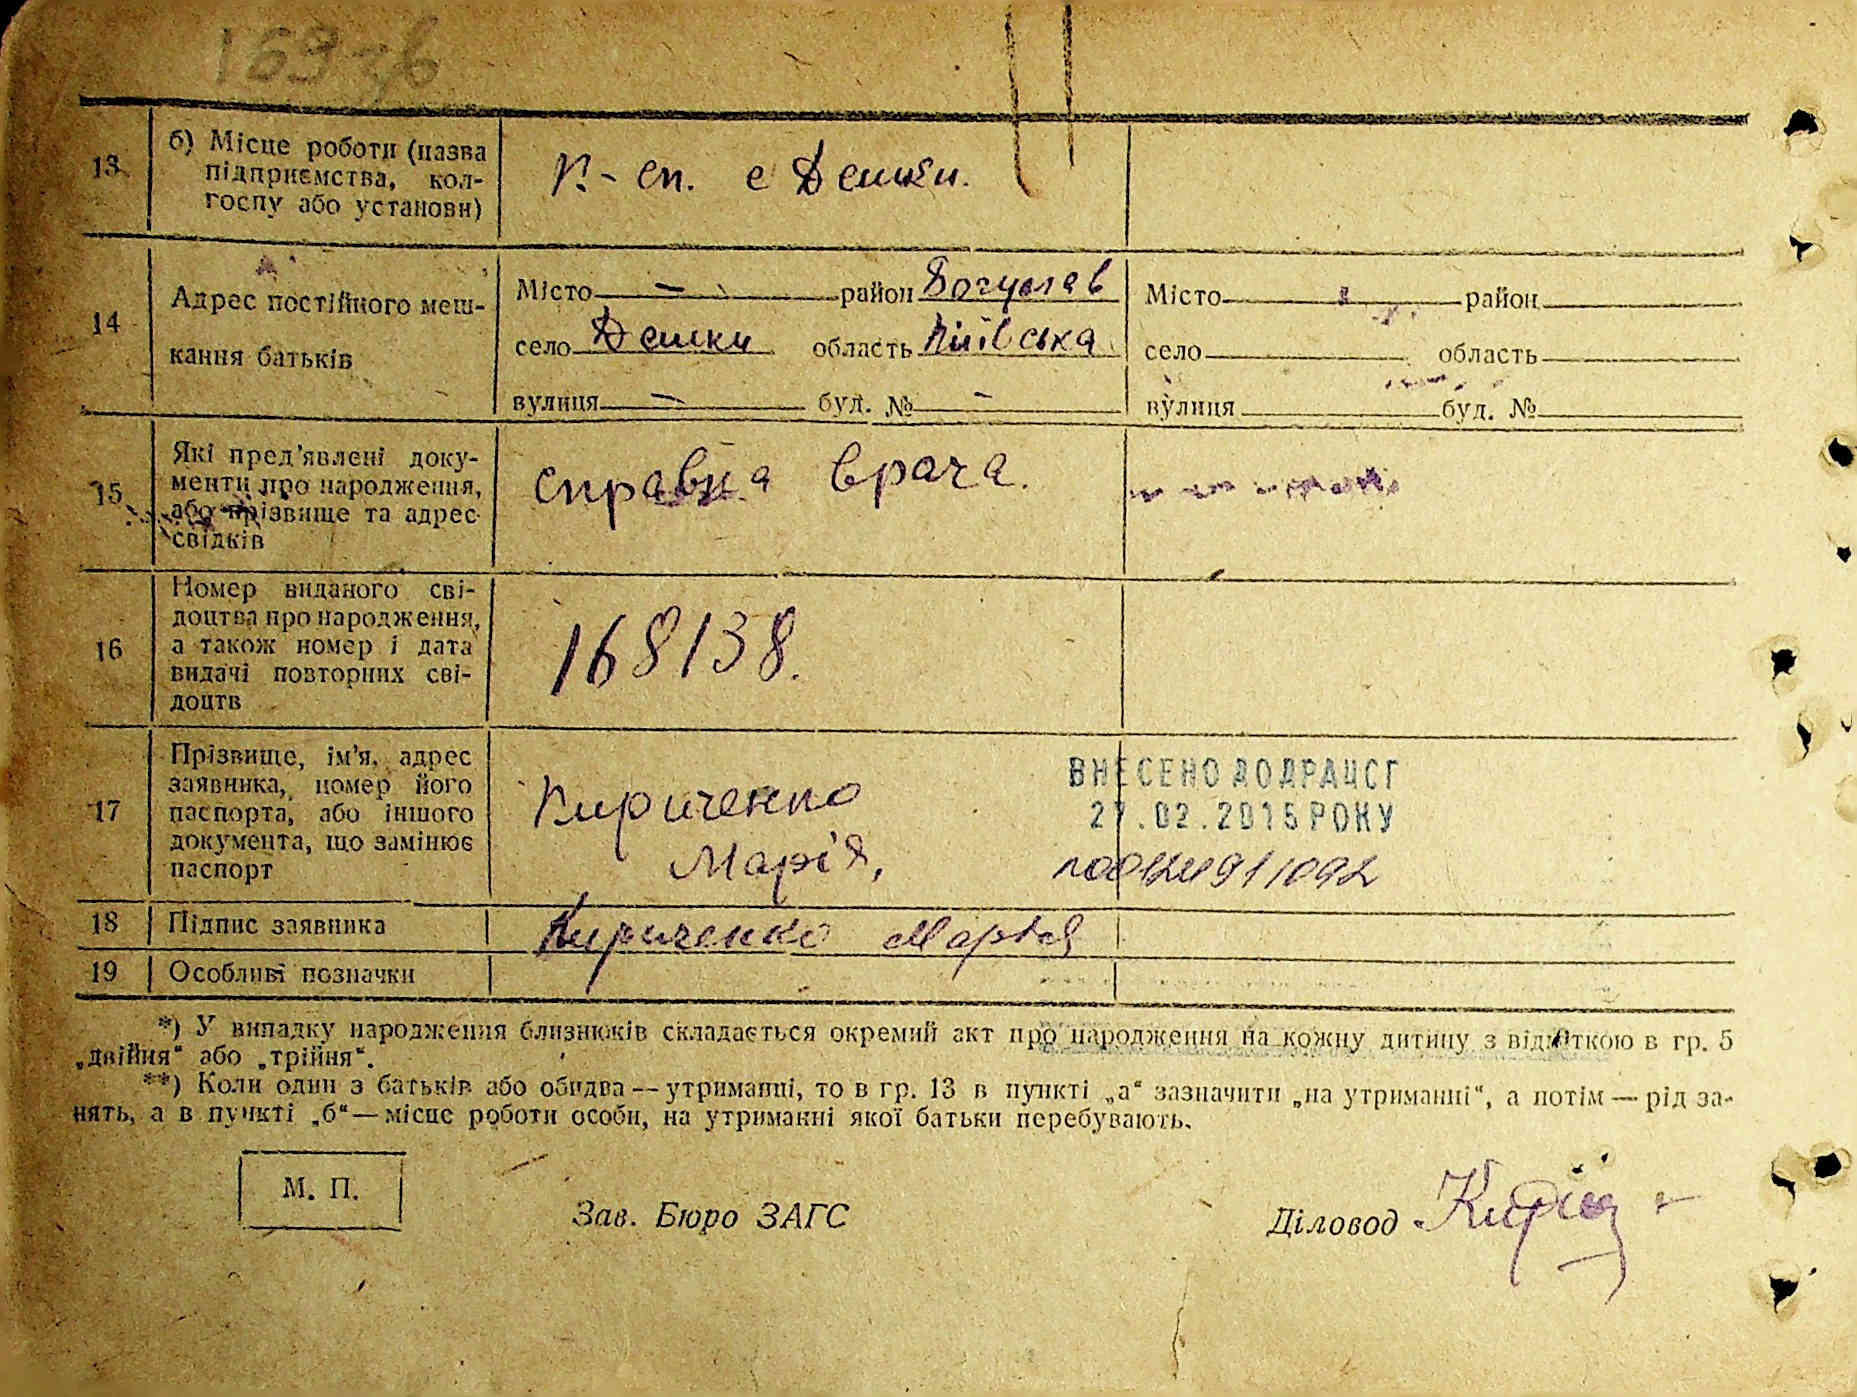 163 зв
13. б) Місце роботи (назва
підприємства, кол-
госпу або установи)
К.- сп. с Дешки.
14 Адрес постійного меш-
кання батьків
Місто — район Богуслав
село Дешки область Київська
вулиця — буд. № —
Місто район
село область
вулиця буд. №
15 Які пред'явлені доку-
менти про народження,
або прізвище та адрес
свідків
справка врача.
16 Номер виданого сві-
доцтва про народження,
а також номер і дата
видачі повторних сві-
доцтв
168138.
17 Прізвище, ім'я, адрес
заявника, номер його
паспорта, або іншого
документа, що замінює
паспорт
Кириченко
Марія,
ВНЕСЕНО ДО ДРАЦСГ
27.02.2015 РОКУ
18 Підпис заявника
Кириченко Марія
19 Особливі позначки
*) У випадку народження близнюків складається окремий акт про народження на кожну дитину з відміткою в гр. 5
„двійня“ або „трійня“.
**) Коли один з батьків або обидва — утриманці, то в гр. 13 в пункті „а“ зазначити „на утриманні“, а потім — рід за-
нять, а в пункті „б“ — місце роботи особи, на утриманні якої батьки перебувають.
М. П.
Зав. Бюро ЗАГС
Діловод